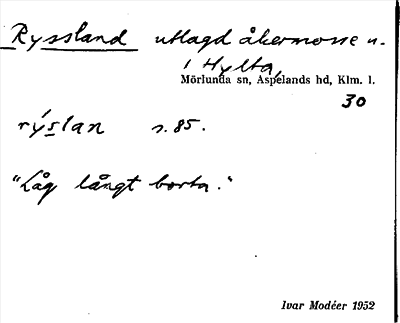 Ryssland utlagd åkermosse u.
i Hylta,
Mörlunda sn, Aspelands hd, Klm. l.
30
rýslan s. 85.
"Låg långt borta."
Ivar Modéer 1952